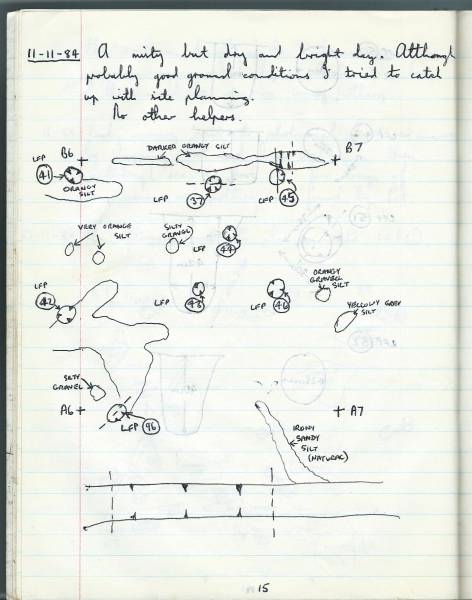 11-11-84 A misty but dry and bright day. Although
probably good ground conditions I tried to catch
up with site planning.
No other helpers.
DARKER ORANGY SILT
LFP B6 + + B7
41
ORANGY
SILT
LFP 37 LFP 45
VERY ORANGE
SILT
SILTY
GRAVEL
LFP 44
ORANGY
GRAVEL
& SILT
LFP
42
43 46
YELLOWY GREY
SILT
SILTY
GRAVEL
A6 + + A7
LFP 96
IRONY
SANDY
SILT
(NATURAL)
15